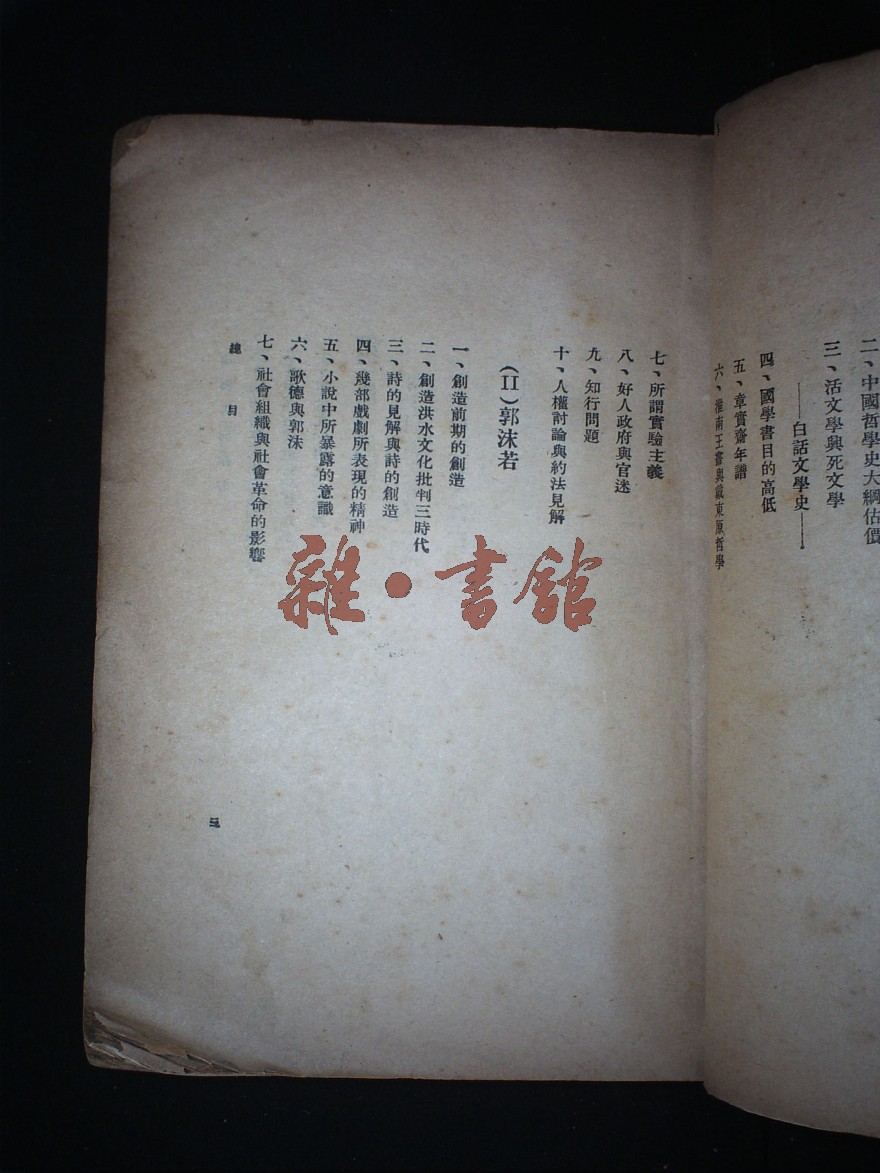 二、中國哲學史大綱估價
三、活文學與死文學
——白話文學史——
四、國學書目的高低
五、章實齋年譜
六、淮南王書與戴東原哲學
七、所謂實驗主義
八、好人政府與官迷
九、知行問題
十、人權討論與約法見解
(II)郭沫若
一、創造前期的創造
二、創造洪水文化批判三時代
三、詩的見解與詩的創造
四、幾部戲劇所表現的精神
五、小說中所暴露的意識
六、歌德與郭沫
七、社會組織與社會革命的影響
總目
三
雜·書館